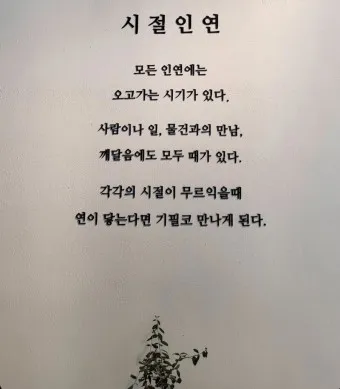 시절인연
모든 인연에는
오고가는 시기가 있다.
사람이나 일, 물건과의 만남,
깨달음에도 모두 때가 있다.
각각의 시절이 무르익을때
연이 닿는다면 기필코 만나게 된다.